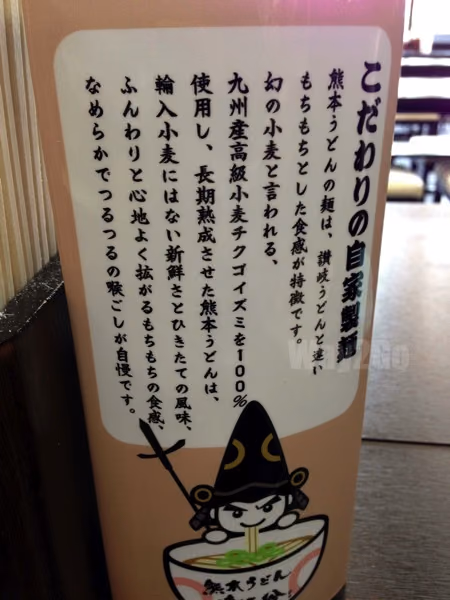 こだわりの自家製麺
熊本うどんの麺は、讃岐うどんと違い
もちもちとした食感が特徴です。
幻の小麦と言われる、
九州産高級小麦チクゴイズミを100%
使用し、長期熟成させた熊本うどんは、
輸入小麦にはない新鮮さとひきたての風味、
ふんわりと心地よく拡がるもちもちの食感、
なめらかでつるつるの喉ごしが自慢です。
Way2Go
熊本うどん